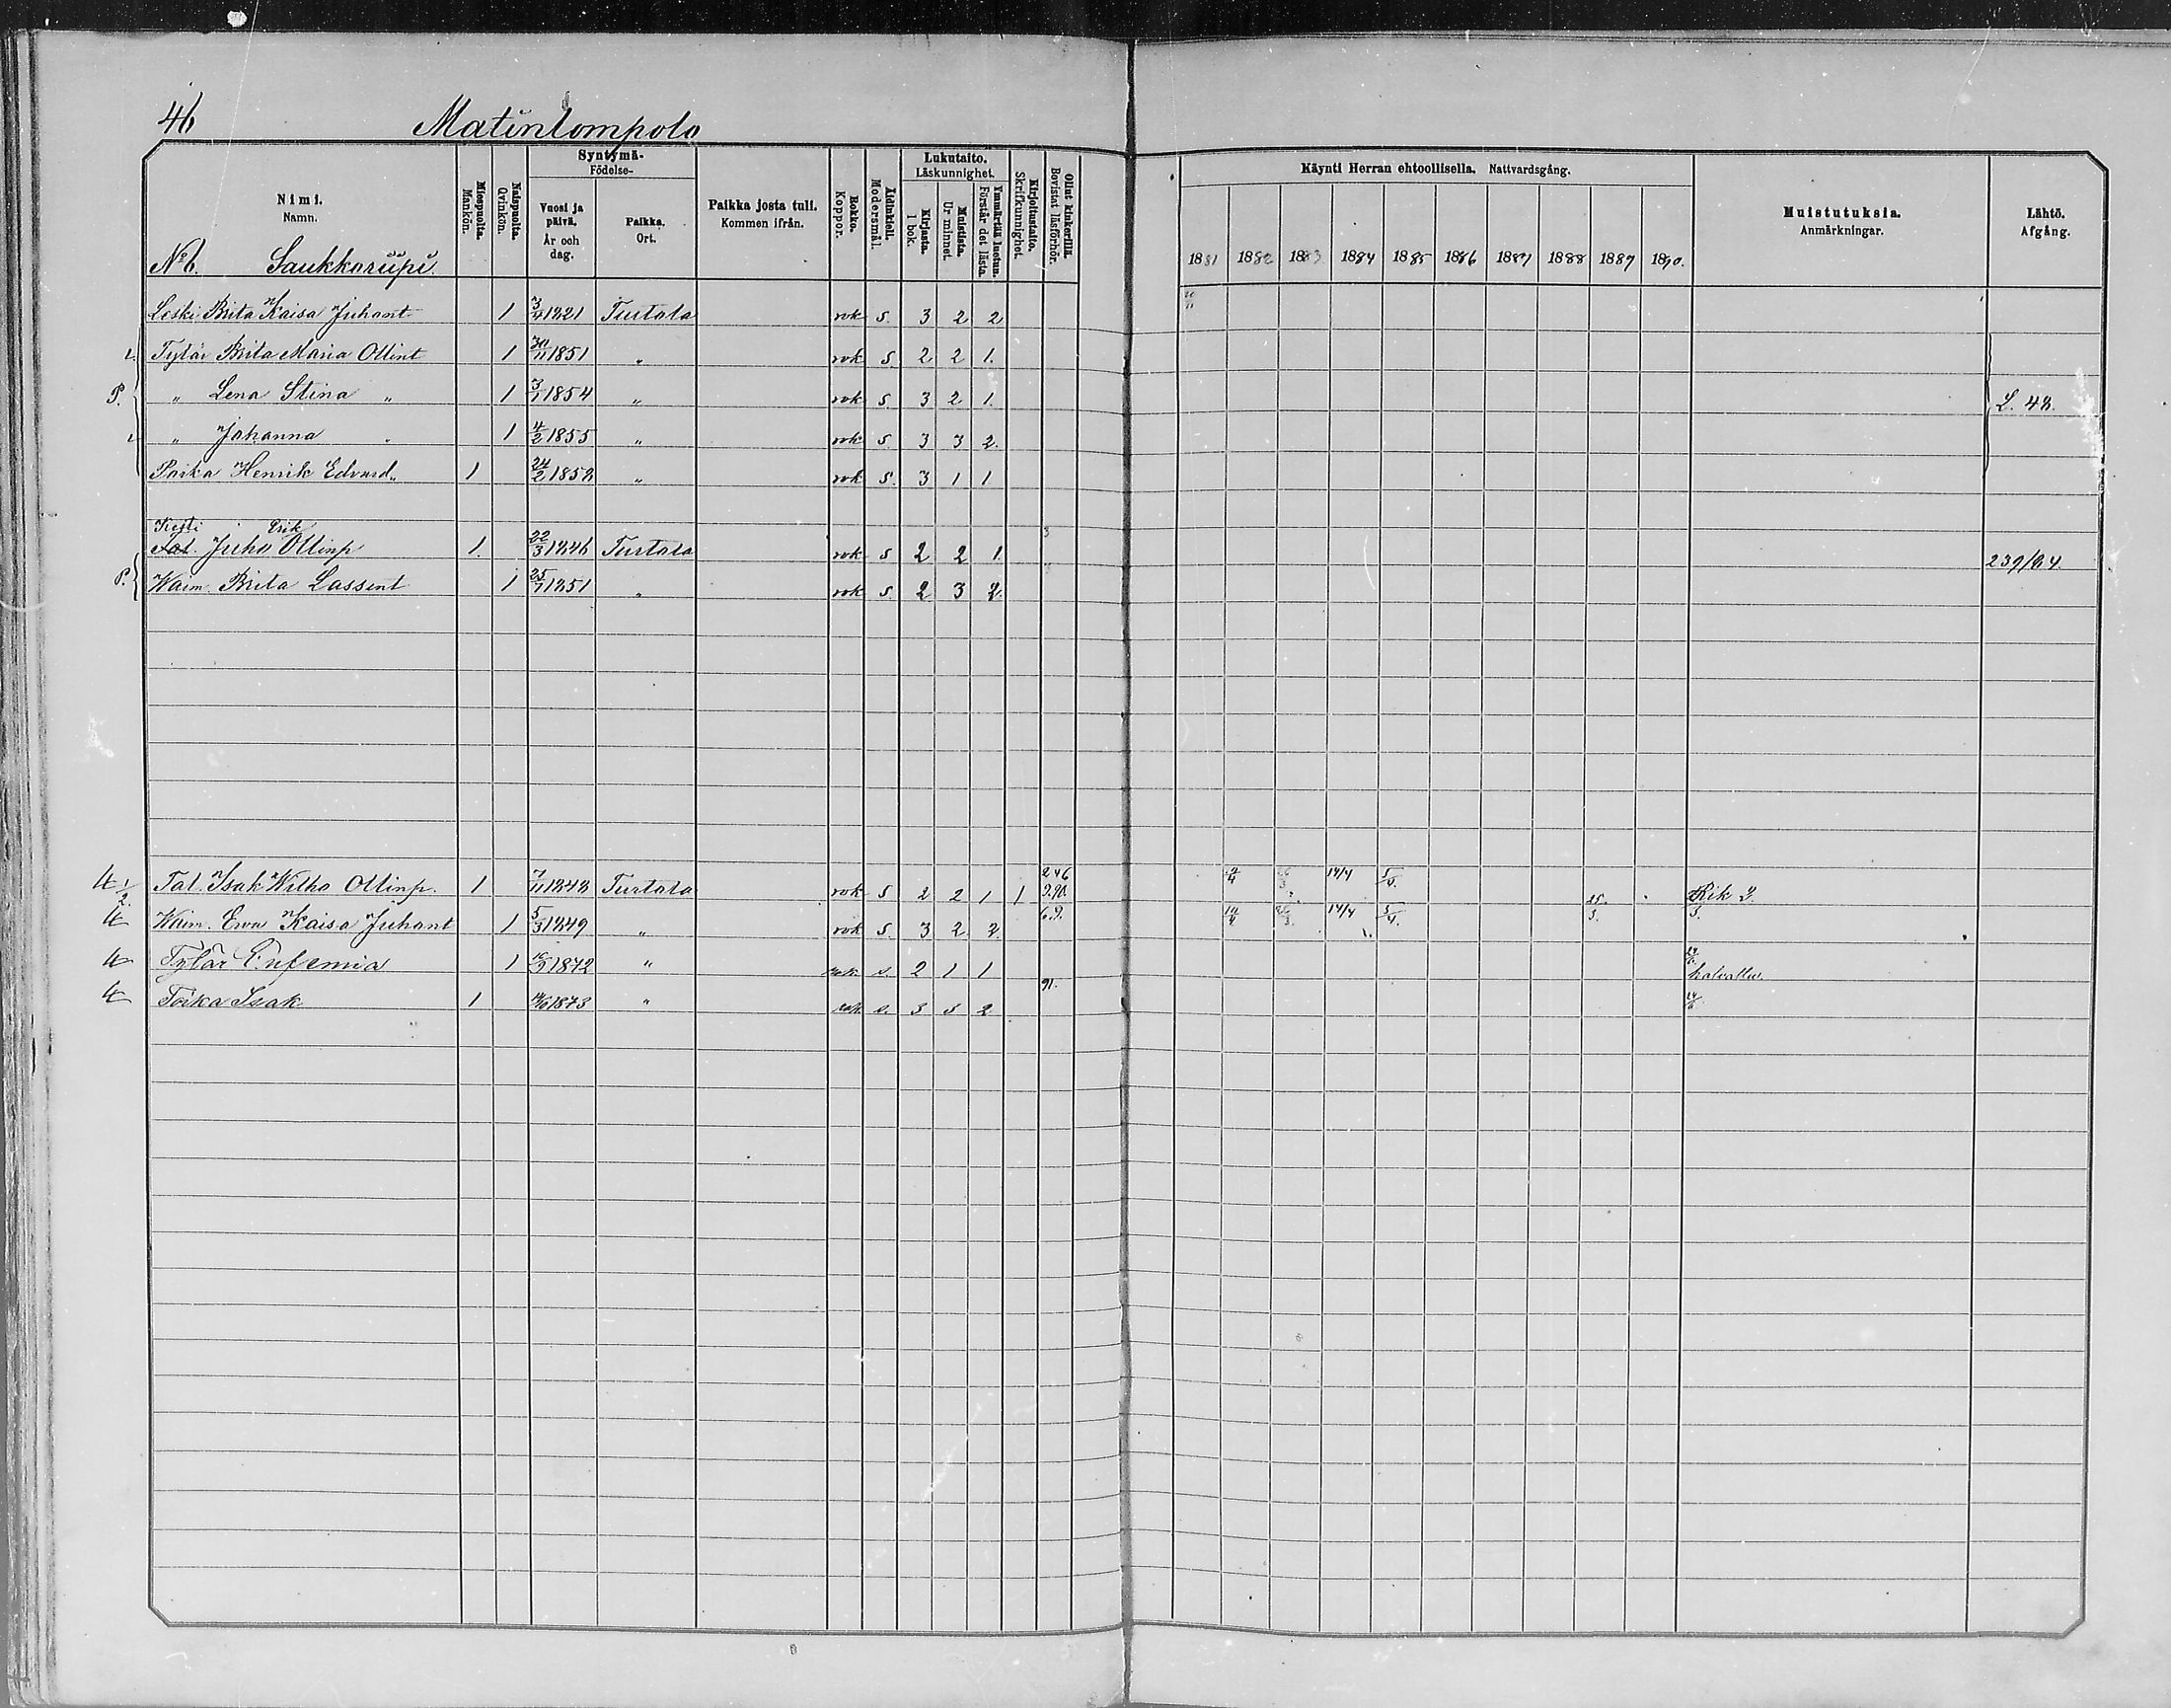 46 Matinlompolo
Nimi. Namn.
Miespuolia. Mankön.
Naispuolia. Qvinkön.
Syntymä- Födelse-
Vuosi ja päivä. År och dag.
Paikka. Ort.
Paikka josta tuli. Kommen ifrån.
Rokko. Koppor.
Äidinkieli. Modersmål.
Lukutaito. Läskunnighet.
Kirjasta. I bok.
Muistista. Ur minnet.
Ymmärtää luetun. Förstår det lästa.
Kirjoitustaito. Skrifkunnighet.
Ollut kinkerillä. Bevistat läsförhör.
Käynti Herran ehtoollisella. Nattvardsgång.
1881 1882 1883 1884 1885 1886 1887 1888 1889 1890.
Muistutuksia. Anmärkningar.
Lähtö. Afgång.
No 6. Saukkoriipi.
Leski Brita Kaisa Juhant 1 3/4 1821 Turtola rok s. 3 2 2
Tytär Brita Maria Ollint 1 30/11 1851 " rok s. 2 2 1.
P. " Lena Stina " 1 3/1 1854 " rok s. 3 2 1. L. 48.
" Johanna " 1 4/2 1855 " rok s. 3 3 2.
Poika Henrik Edvard " 1 24/2 1858 " rok s. 3 1 1
Kesti Erik
Tal. Juho Ollinp 1. 22/3 1846 Turtola rok s 2 2 1. 3 239/84.
P. Waim. Brita Lassent 1 25/7 1851 " rok s. 2 3 2.
1/2 Tal. Isak Wilho Ollinp. 1 7/11 1848 Turtola rok s 2 2 1 1 246 9.90. 14/4 5/4. Rik 3.
Waim. Ewa Kaisa Juhant 1 5/3 1849 " rok s. 3 2 2. 6.9. 14/4 5/4. 25/3. 3.
Tytär Eufemia 1 1872 " rok. s. 2 1 1
Poika Isak 1 1873 " rok. s. 3 s 2 91.